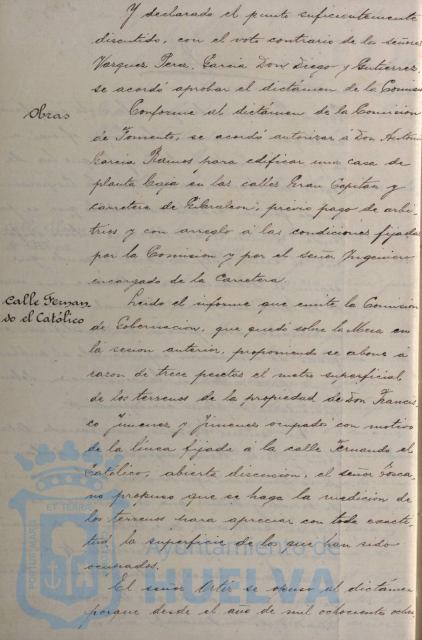 Y declarado el punto suficientemente
discutido, con el voto contrario de los señores
Vazquez Perez, Garcia Don Diego y Gutierrez,
se acordó aprobar el dictámen de la Comision
Obras
Conforme al dictámen de la Comision
de Fomento, se acordó autorizar á Don Antonio
Garcia Ramos para edificar una casa de
planta baja en las calles Gran Capitan y
carretera de Gibraleon, prévio pago de arbi-
trios y con arreglo á las condiciones fijadas
por la Comision y por el señor Ingeniero
encargado de la Carretera.
Calle Fernan
do el Católico
Leido el informe que emite la Comision
de Gobernacion, que quedó sobre la Mesa en
la sesion anterior, proponiendo se abone á
razon de trece pesetas el metro superficial
de los terrenos de la propiedad de Don Francis-
co Jimenez y Jimenez ocupados con motivo
de la línea fijada á la calle Fernando el
Católico, abierta discusion, el señor
no propuso que se haga la medicion de
los terrenos para apreciar con toda exacti-
tud, la superficie de los que han sido
ocupados.
El señor se opuso al dictámen
porque desde el año de mil ochocientos ochen
PORTUS MARIS
ET TERRAE
Ayuntamiento de
HUELVA